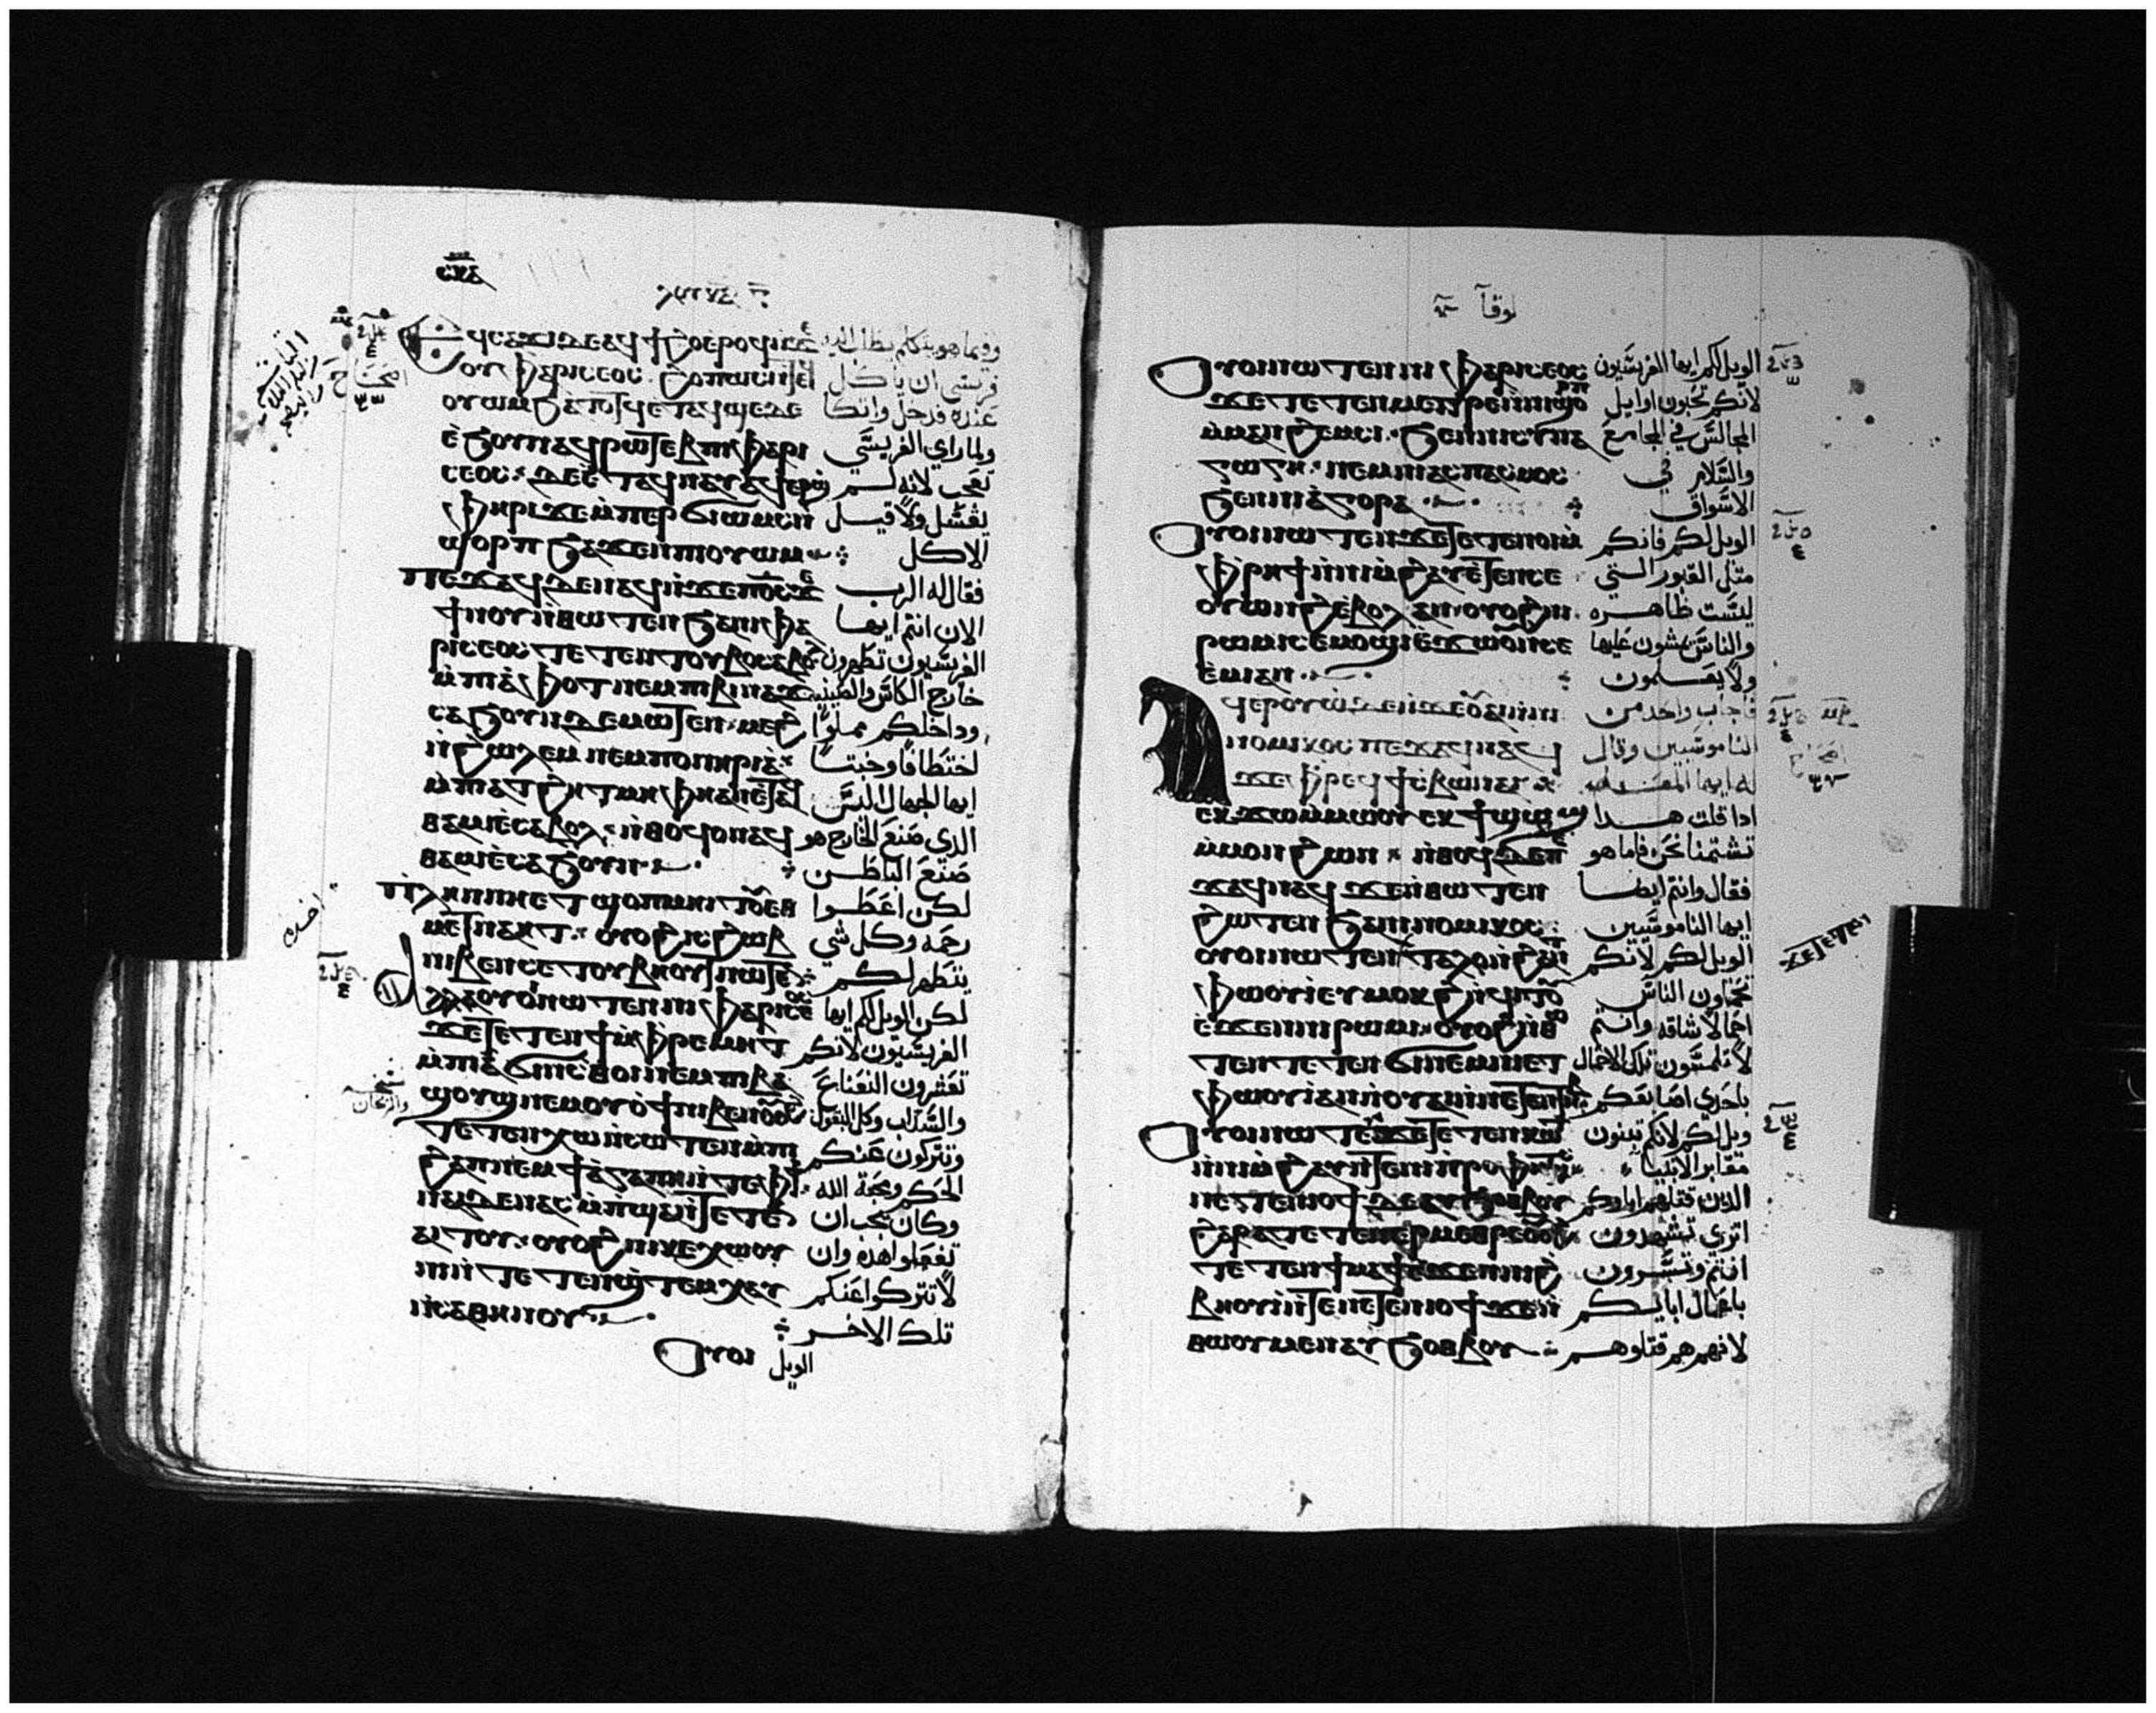 لوقا
ⲉϥⲥⲁϫⲓ ⲇⲉ ⲁϥϯϩⲟ ⲉⲣⲟϥ ⲛϫⲉ وفيما هو يتكلم
ⲟⲩ ⲫⲁⲣⲓⲥⲉⲟⲥ ϩⲟⲡⲱⲥ ⲛⲧⲉϥ فريسي ان ياكل
ⲟⲩⲱⲙ ϧⲁⲧⲟⲧϥ ⲉⲧⲁϥϣⲉ ⲇⲉ عنده فدخل واتكا
ⲉϧⲟⲩⲛ ⲁϥⲣⲱⲧⲉⲃ ⲡⲓⲫⲁⲣⲓ ولما راي الفريسي
ⲥⲉⲟⲥ ⲇⲉ ⲉⲧⲁϥⲛⲁⲩ ⲁϥⲉⲣϣ تعجب لانه لم
ⲫⲏⲣⲓ ϫⲉ ⲙⲡⲉϥϭⲓⲱⲙⲥ ⲛ يغتسل ولا قبل
ϣⲟⲣⲡ ϧⲁϫⲉⲛ ⲡⲓⲟⲩⲱⲙ الاكل
ⲡⲉϫⲁϥ ⲇⲉ ⲛⲁϥ ⲛϫⲉ ⲡⲟⲥ ϫⲉ فقال له الرب
ϯⲛⲟⲩ ⲛⲑⲱⲧⲉⲛ ϧⲁ ⲛⲓⲫⲁ الان انتم ايها
ⲣⲓⲥⲉⲟⲥ ⲧⲉⲧⲉⲛⲧⲟⲩⲃⲟ ⲥⲁⲃⲟⲗ الفريسيون تطهرون
ⲙⲡⲓⲁⲫⲟⲧ ⲛⲉⲙ ⲡⲓⲃⲓⲛⲁϫ خارج الكاس والصينيه
ⲥⲁϧⲟⲩⲛ ⲇⲉ ⲙⲙⲱⲧⲉⲛ ⲙⲉϩ وداخلكم مملوا
ⲛϩⲱⲗⲉⲙ ⲛⲉⲙ ⲡⲟⲛⲏⲣⲓⲁ اختطافا وخبثا
ⲡⲓⲁⲧϩⲏⲧ ⲙⲏ ⲫⲏ ⲁⲛ ⲉⲧⲁϥ ايها الجهال اليس
ⲑⲁⲙⲓⲉ ⲥⲁⲃⲟⲗ ⲛⲑⲟϥ ⲟⲛ ⲁϥ الذى صنع الخارج هو
ⲑⲁⲙⲓⲉ ⲥⲁϧⲟⲩⲛ صنع الباطن
ⲡⲗⲏⲛ ⲛⲏ ⲉⲧϣⲟⲡ ⲙⲏⲓⲧⲟⲩ ⲉⲛ لكن اعطوا
ⲙⲉⲧⲛⲁⲏⲧ ⲟⲩⲟϩ ⲓⲥ ϩⲱⲃ رحمه وكل شي
ⲛⲓⲃⲉⲛ ⲥⲉⲧⲟⲩⲃⲏⲟⲩⲧ ⲛⲱⲧⲉⲛ يتطهر لكم
ⲁⲗⲗⲁ ⲟⲩⲟⲓ ⲛⲱⲧⲉⲛ ⲛⲓⲫⲁⲣⲓⲥⲉⲟⲥ لكن الويل لكم ايها
ϫⲉ ⲧⲉⲧⲉⲛϯ ⲙⲫⲣⲉⲙⲏⲧ الفريسيون لانكم
ⲙⲡⲓⲁϭⲓⲛⲥⲑⲟⲓ ⲛⲉⲙ ⲡⲓⲃⲁ تعشرون النعناع
ϣⲟⲩϣ ⲛⲉⲙ ⲟⲩⲟϯ ⲛⲓⲃⲉⲛ والسداب وكل البقول
ⲧⲉⲧⲉⲛⲭⲱ ⲛⲥⲱⲧⲉⲛ ⲙⲡⲓ وتتركون عنكم
ϩⲁⲡ ⲛⲉⲙ ϯⲁⲅⲁⲡⲏ ⲛⲧⲉ ⲫϯ الحكم ومحبة الله
ⲛⲁⲓ ⲇⲉ ⲛⲁⲥⲙⲡϣⲁ ⲛⲧⲉⲧⲉⲛ وكان يجب ان
ⲁⲓⲧⲟⲩ ⲟⲩⲟϩ ⲛⲓⲕⲉⲭⲱⲟⲩ تفعلوا هذه وان
ⲛⲓ ⲛⲧⲉⲧⲉⲛϣⲧⲉⲙⲭⲁⲩ لا تتركوا عنكم
ⲛⲥⲁⲑⲏⲛⲟⲩ تلك الاخر
ⲟⲩⲟⲓ الويل
لوقا
ⲟⲩⲟⲓ ⲛⲱⲧⲉⲛ ⲛⲓⲫⲁⲣⲓⲥⲉⲟⲥ الويل لكم ايها الفريسيون
ϫⲉ ⲧⲉⲧⲉⲛⲙⲉⲓ ⲛⲛⲓϣⲟⲣⲡ لانكم تحبون اوايل
ⲙⲙⲁⲛϩⲉⲙⲥⲓ ϧⲉⲛ ⲛⲓⲥⲩⲛⲁ المجالس في المجامع
ⲅⲱⲅⲏ ⲛⲉⲙ ⲛⲓⲁⲥⲡⲁⲥⲙⲟⲥ والسلام في
ϧⲉⲛ ⲛⲓⲁⲅⲟⲣⲁ الاسواق
ⲟⲩⲟⲓ ⲛⲱⲧⲉⲛ ϫⲉ ⲧⲉⲧⲉⲛⲟⲛⲓ ⲙ الويل لكم فانكم
ⲫⲣⲏϯ ⲛⲛⲓⲙϩⲁⲩ ⲉⲧⲉⲛⲥⲉ مثل القبور التي
ⲟⲩⲱⲛϩ ⲉⲃⲟⲗ ⲁⲛ ⲟⲩⲟϩ ⲛⲓ ليست ظاهره
ⲣⲱⲙⲓ ⲥⲉⲙⲟϣⲓ ⲉϫⲱⲟⲩ ⲛⲥⲉ والناس يمشون عليها
ⲉⲙⲓ ⲁⲛ ولا يعلمون
ⲁϥⲉⲣⲟⲩⲱ ⲇⲉ ⲛϫⲉ ⲟⲩⲁⲓ ⲛⲛⲓ فاجاب واحد من
ⲛⲟⲙⲓⲕⲟⲥ ⲡⲉϫⲁϥ ⲛⲁϥ الناموسيين وقال
ϫⲉ ⲫⲣⲉϥϯⲥⲃⲱ ⲛⲁⲓ له ايها المعلم
ⲉⲕϫⲱ ⲙⲙⲱⲟⲩ ⲉⲕϯϣⲱϣ اذا قلت هذا
ⲙⲙⲟⲛ ϩⲱⲛ ⲛⲑⲟϥ ⲇⲉ ⲡⲉ تشتمنا نحن فاما هو
ϫⲁϥ ⲛⲁϥ ϫⲉ ⲛⲑⲱⲧⲉⲛ فقال وانتم ايضا
ϩⲱⲧⲉⲛ ϧⲁ ⲛⲓⲛⲟⲙⲓⲕⲟⲥ ايها الناموسيين
ⲟⲩⲟⲓ ⲛⲱⲧⲉⲛ ⲧⲉⲧⲉⲛⲧⲁⲗⲟ ⲛϩⲁⲛ الويل لكم لانكم
ⲫⲱⲟⲩⲓ ⲉⲩⲙⲟⲕϩ ⲛϥⲓⲧⲟⲩ تحملون الناس
ⲉϫⲉⲛ ⲛⲓⲣⲱⲙⲓ ⲟⲩⲟϩ ⲛⲑⲱ احمالا شاقه وانتم
ⲧⲉⲛ ⲧⲉⲧⲉⲛϭⲓⲛⲉⲙ ⲛⲓⲉⲧ لا تلمسون تلك الاحمال
ⲫⲱⲟⲩⲓ ⲁⲛ ⲛⲟⲩⲁⲓ ⲛⲛⲉⲧⲉⲛⲧⲏⲃ باحدي اصابعكم
ⲟⲩⲟⲓ ⲛⲱⲧⲉⲛ ϫⲉ ⲧⲉⲧⲉⲛⲕⲱⲧ ويل لكم لانكم تبنون
ⲛⲛⲓⲙϩⲁⲩ ⲛⲧⲉ ⲛⲓⲡⲣⲟⲫⲏⲧⲏⲥ مقابر الانبيا
ⲛⲉⲧⲉⲛⲓⲟϯ ⲇⲉ ⲁⲩϧⲟⲑⲃⲟⲩ الذين قتلهم اباوكم
ϩⲁⲣⲁ ⲧⲉⲧⲉⲛⲉⲣⲙⲉⲑⲣⲉ ⲟⲩⲟϩ اتري تشهدون
ⲧⲉⲧⲉⲛϯⲙⲁϯ ⲉϫⲉⲛ ⲛⲓϩ انتم وتسرون
ⲃⲏⲟⲩⲓ ⲛⲧⲉ ⲛⲉⲧⲉⲛⲓⲟϯ ϫⲉ ⲛ باعمال ابايكم
ⲑⲱⲟⲩ ⲙⲉⲛ ⲁⲩϧⲟⲑⲃⲟⲩ لانهم هم قتلوهم